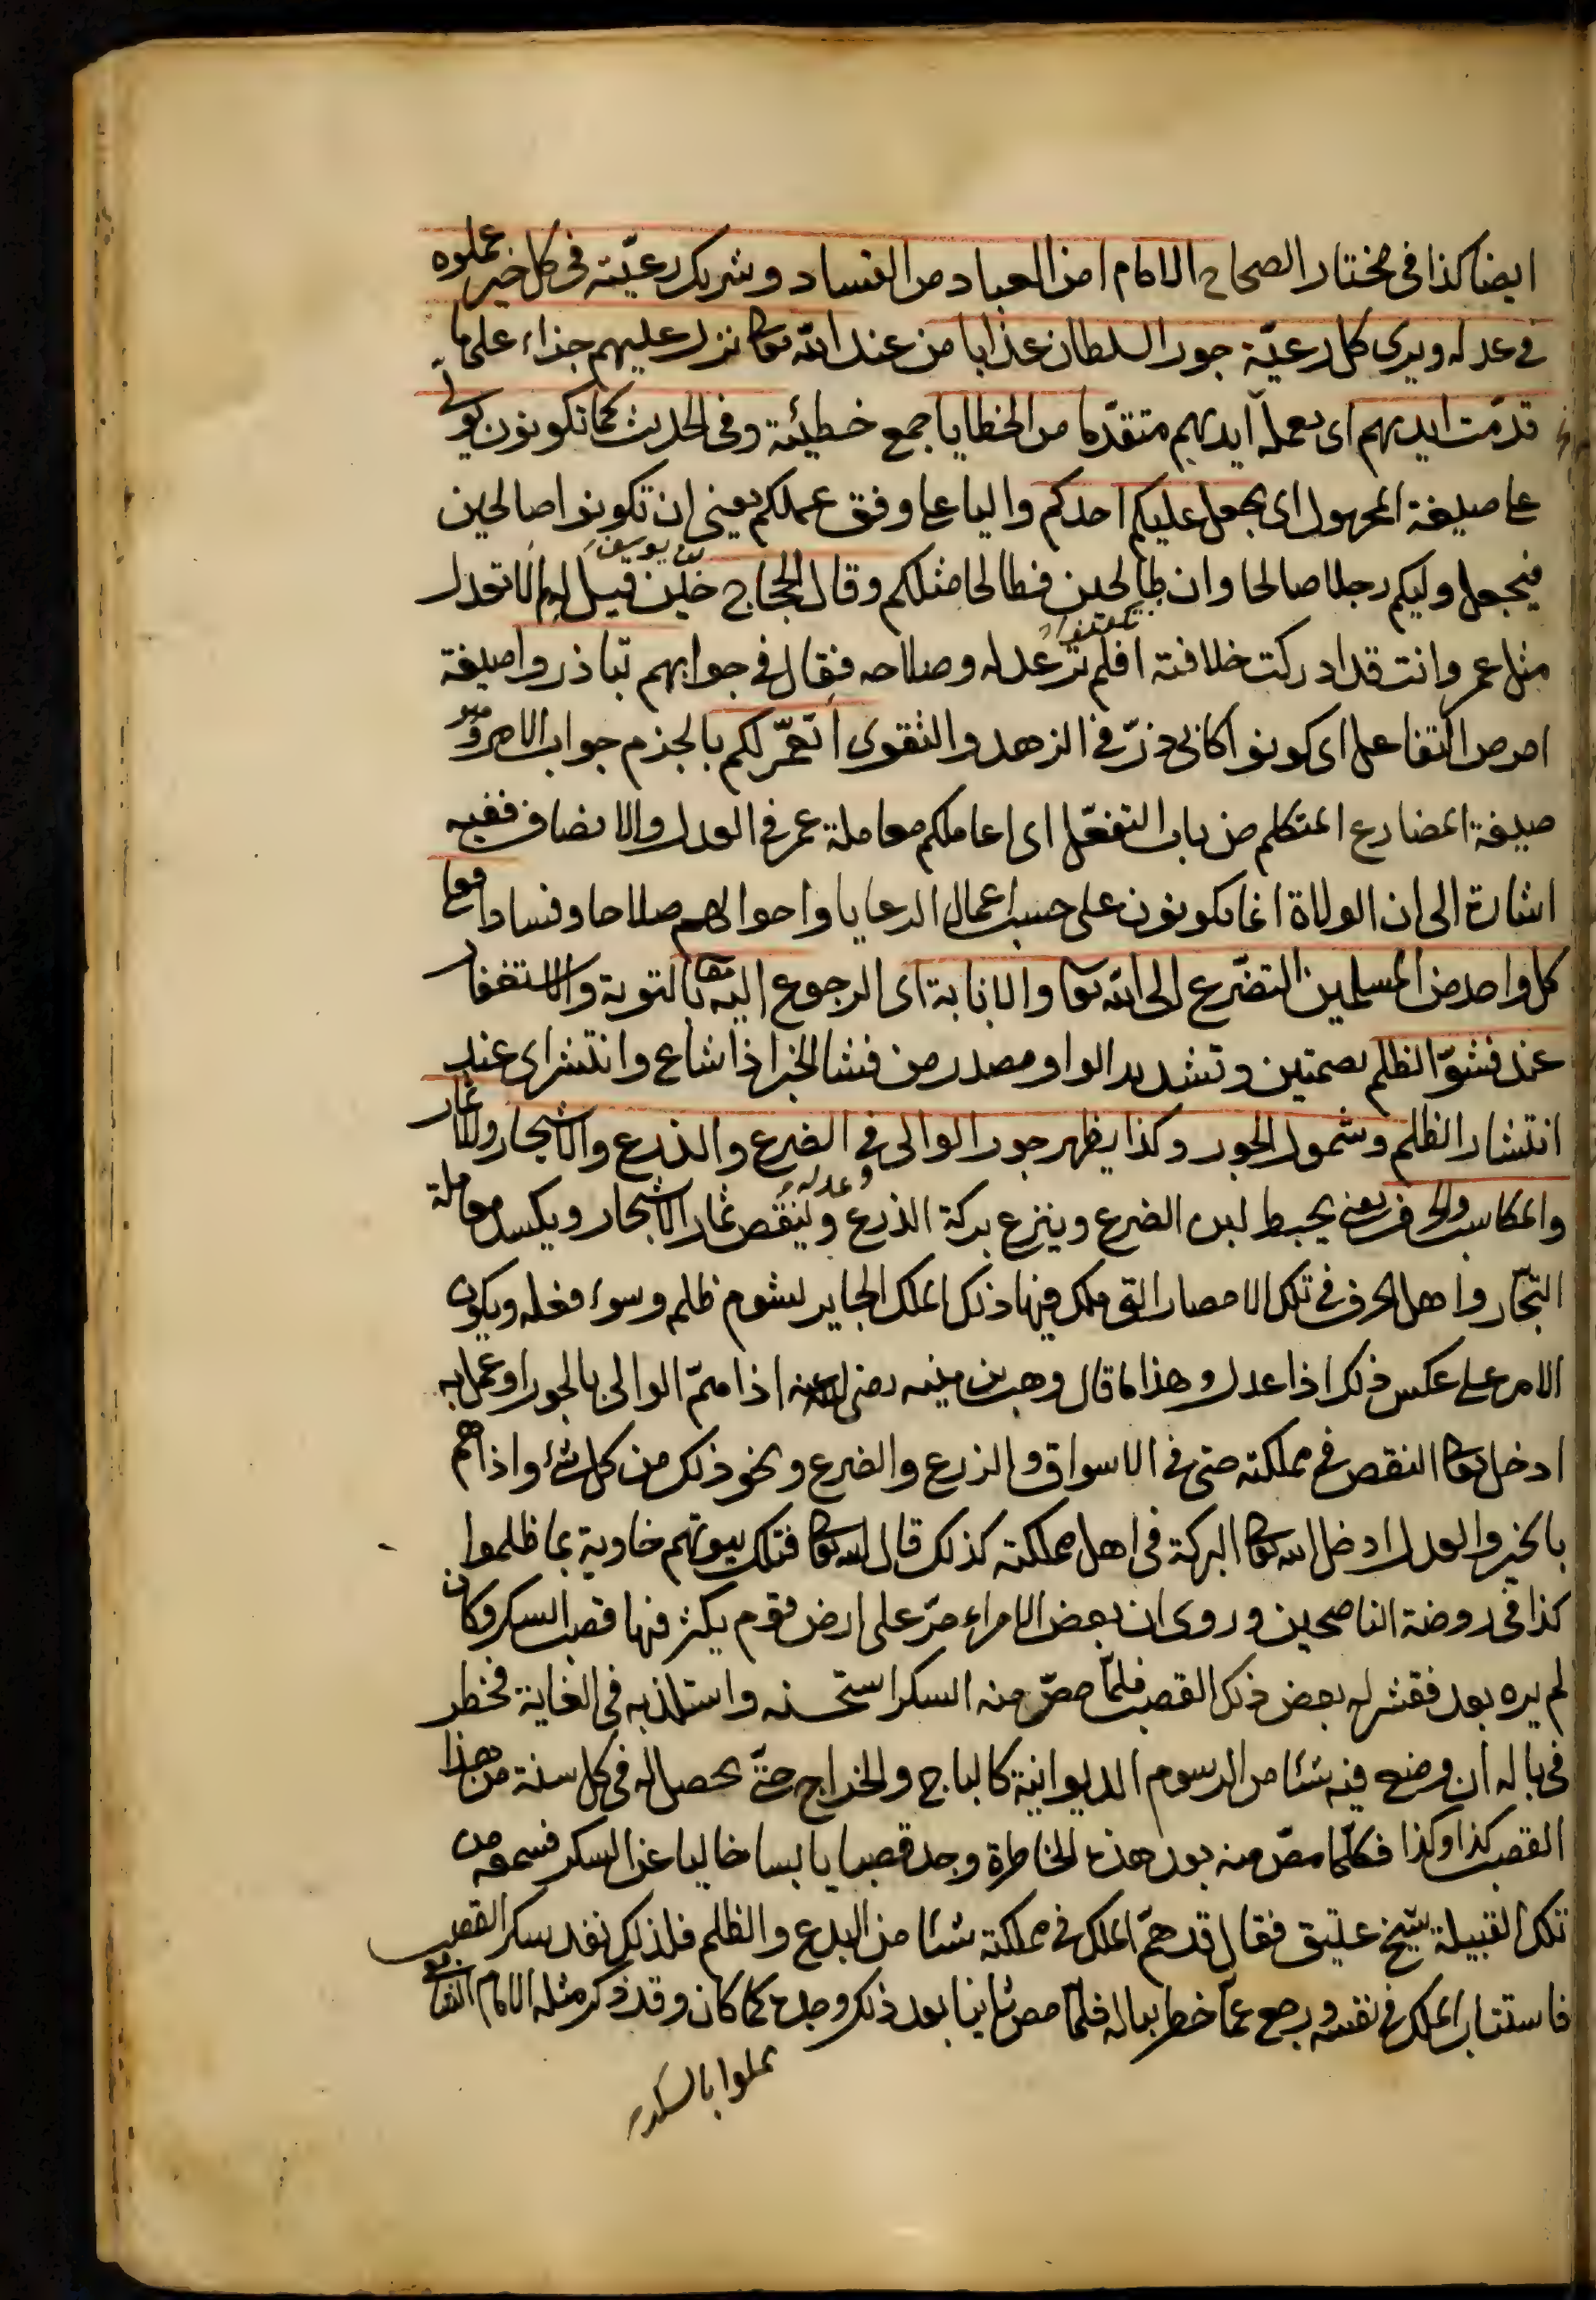 ايضا كذا فى مختار الصحاح الامام امن العباد من الفساد وشريك رعيّته فى كل خير عملوه
فى عدله ويرى كل رعيّة جور السلطان عذابا من عند الله تعا نزل عليهم جزاء على ما
قدّمت ايديهم اى بعمل ايديهم متقدّما من الخطايا جمع خطيئة وفى الحديث كما تكونون يولّى
على صيغة المجهول اى يجعل عليكم احدكم واليا على وفق عملكم يعنى ان تكونوا صالحين
فيجعل وليكم رجلا صالحا وان طالحين فطالحا مثلكم وقال الحجاج بن يوسف حين قيل له لم لا تعدل
مثل عمر وانت قد ادركت خلافته افلم تر عدله وصلاحه فقال فى جوابهم تباذروا صيغة
امر من التفاعل اى كونوا كابى ذرّ فى الزهد والتقوى اتعمّر لكم بالجزم جواب الامر وهو
صيغة المضارع المتكلم من باب التفعّل اى اعاملكم معاملة عمر فى العدل والانصاف ففيه
اشارة الى ان الولاة انما يكونون على حسب اعمال الرعايا واحوالهم صلاحا وفسادا فعلى
كل واحد من المسلمين التضرّع الى الله تعا والانابة اى الرجوع اليه تعا بالتوبة والاستغفار
عند فشوّ الظلم بضمتين وتشديد الواو مصدر من فشا الخبر اذا شاع وانتشر اى عند
انتشار الظلم وشمول الجور وكذا يظهر جور الوالى وعدله فى الضرع والذرع والاشجار والاثمار
والمكاسب والحرف يعنى يحبط لبن الضرع وينزع بركة الذرع وينقص ثمار الاشجار ويكسد معاملة
التجّار واهل الحرف فى تلك الامصار التى ملك فيها ذلك الملك الجاير لشوم ظلمه وسوء فعله ويكون
الامر على عكس ذلك اذا عدل وهذا ما قال وهب بن منبه رضى الله عنه اذا همّ الوالى بالجور او عمل به
ادخل تعا النقص فى مملكته حتى فى الاسواق والزرع والضرع ونحو ذلك من كل شئ واذا همّ
بالخير والعدل ادخل الله تعا البركة فى اهل مملكته كذلك قال الله تعا فتلك بيوتهم خاوية بما ظلموا
كذا فى روضة الناصحين وروى ان بعض الامراء مرّ على ارض قوم يكثر فيها قصب السكر وكان
لم يره بعد فقشر له بعض ذلك القصب فلمّا مصّ منه السكر استحسنه واستلذ به فى الغاية فخطر
فى باله ان وضع فيه شيئا من الرسوم الديوانية كالباج والخراج حتّى يحصل له فى كل سنة من هذا
القصب كذا وكذا فكلّما مصّ منه بعد هذه الخاطرة وجد قصبا يابسا خاليا عن السكر فسمعه من
تلك القبيلة شيخ عتيق فقال قد همّ الملك فى مملكته شيئا من البدع والظلم فلذلك نفد سكر القصب
فاستتاب الملك فى نفسه ورجع عمّا خطر بباله فلمّا مص ثانيا بعد ذلك وجده كما كان وقد ذكر مثله الامام الشافعى
مملوا بالسكر